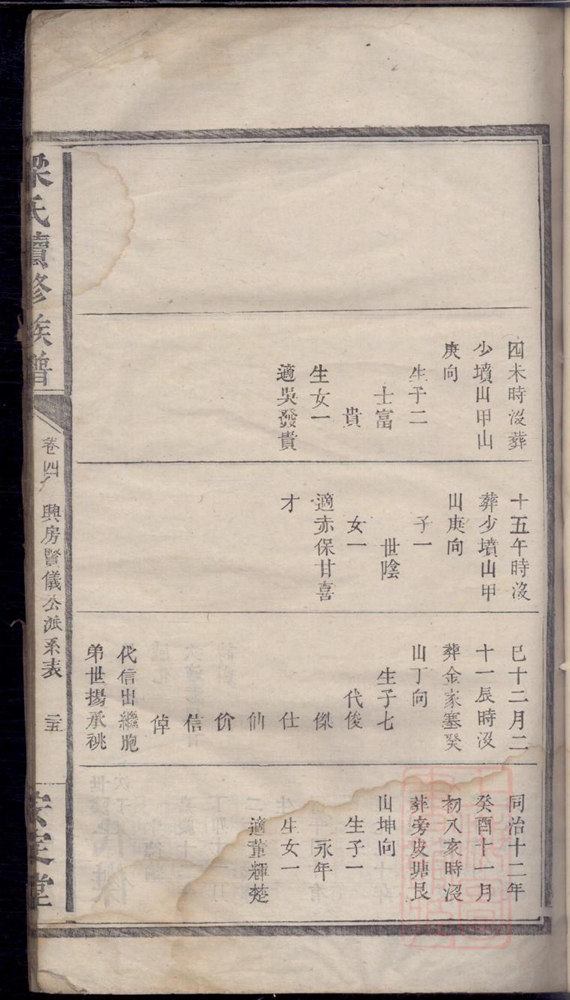 四未時沒葬
少墳山甲山
庚向
生子二
士富
貴
生女一
適吳發貴
十五午時沒
葬少墳山甲
山庚向
子一
世陰
女一
適赤保甘喜
才
巳十二月二
十一辰時沒
葬金家墓癸
山丁向
生子七
代俊
傑
仕
仙
价
信
倬
代信出繼胞
弟世揚承祧
同治十二年
癸酉十一月
初八亥時沒
葬旁皮塘艮
山坤向
生子一
永年
生女一
適董輝楚
梁氏續修族譜
卷四
興房賢儀公派系表
二五
定堂